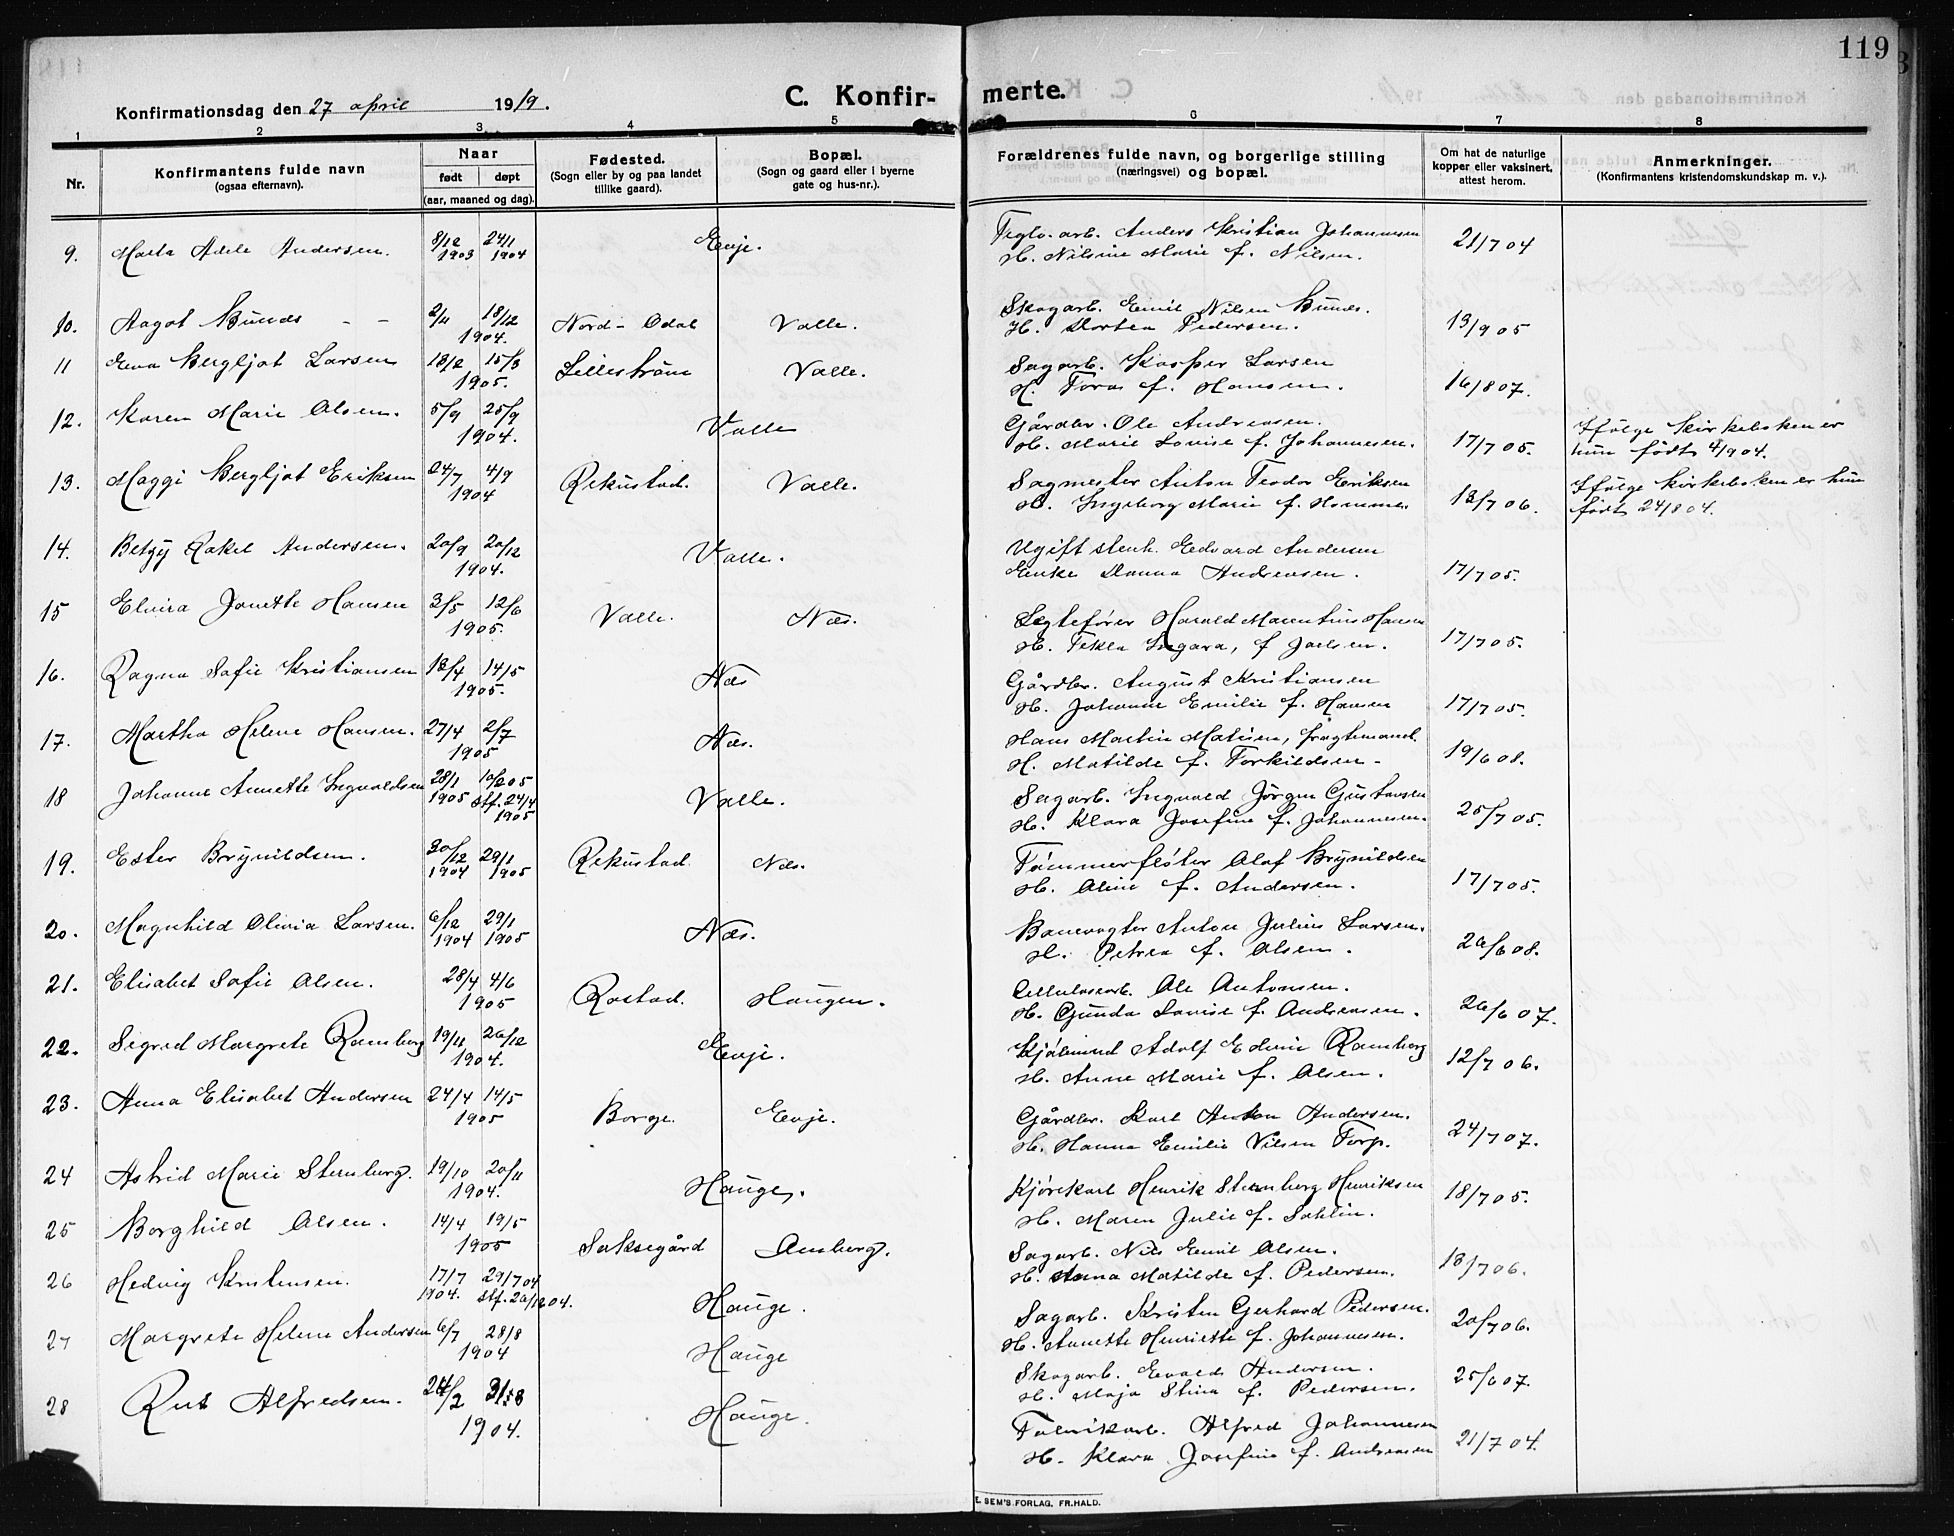 119
Konfirmationsdag den 27 april 1919.
C. Konfir- merte.
1 2 3 4 5 6 7 8
Nr. Konfirmantens fulde navn (ogsaa efternavn). Naar født døpt (aar, maaned og dag). Fødested. (Sogn eller by og paa landet tillike gaard). Bopæl. (Sogn og gaard eller i byerne gate og hus-nr.). Forældrenes fulde navn, og borgerlige stilling (næringsvei) og bopæl. Om hat de naturlige kopper eller vaksinert, attest herom. Anmerkninger. (Konfirmantens kristendomskundskap m. v.).
9. Marta Adele Andersen. 8/12 1903 24/1 1904 Evje. Teglv. arb. Anders Kristian Johannesen 21/7 04
H. Nilsine Marie f. Nilsen.
10. Aagot Bunds - - 2/11 18/12 1904. Nord-Odal Valle. Skogarb. Emil Nilsen Bunds. 13/9 05
H. Dortea Pedersen.
11 Eva Bergljot Larsen 18/2 15/3 1905. Lillestrøm Valle. Sagarb. Kasper Larsen 16/8 07.
H. Tora f. Hansen.
12. Karen Marie Olsen. 5/9 25/9 1904. Valle Gårdbr. Ole Andreasen. 17/7 05. Ifølge Kirkeboken er
H. Marie Lovise f. Johannesen. hun født 4/9 04.
13. Maggi Bergljot Eriksen 24/7 4/9 1904 Rekustad. Valle. Sagmester Anton Teodor Eriksen 18/7 06. Ifølge Kirkeboken er hun
H. Ingeborg Marie f. Homme. født 24/8 04.
14. Betzy Rakel Andersen. 20/9 20/12 1904. Valle. Ugift stenh. Edvard Andersen 17/7 05.
Enke Hanna Andreasen.
15 Elvira Janette Hansen 3/5 12/6 1905. Valle. Næs. Lægtefører Harald Marentius Hansen 17/7 05.
H. Tekla Ingara, f Joelsen.
16. Ragna Sofie Kristiansen 18/4 14/5 1905. Næs Gårdbr. August Kristiansen 17/7 05.
H. Johanne Emilie f. Hansen
17. Martha Helene Hansen. 27/4 2/7 1905 Næs. Hans Martin Matisen, fragtemand. 19/6 08.
H. Matilde f. Torkildsen -
18 Johanne Annette Ingvaldsen 28/1 1905 10/2 05 stf. 24/4 1905 Valle. Sagarb. Ingvald Jørgen Gustavsen 25/7 05.
H. Klara Josefine f. Johannesen.
19. Ester Brynildsen. 30/12 1904 29/1 1905 Rekustad. Næs. Tømmerfløter Olaf Brynildsen 17/7 05.
H. Oline f. Andersen.
20. Magnhild Olivia Larsen. 6/12 1904 29/1 1905 Næs. Banevogter Anton Julius Larsen. 26/6 08.
H. Petrea f. Olsen.
21. Elisabet Sofie Olsen. 28/4 4/6 1905 Rostad. Haugen. Cellulosearb. Ole Antonsen. 26/6 07.
H. Gunda Lovise f. Andreasen.
22. Sigrid Margrete Ramberg 19/11 26/12 1904. Evje. Kjølmand Adolf Edvin Ramberg 12/7 06.
H. Anne Marie f. Olsen.
23. Anna Elisabet Andersen 24/4 14/5 1905 Borge. Evje. Gårdbr. Karl Anton Andersen. 24/7 07.
H. Hanna Emilie Nilsen Torp.
24 Astrid Marie Stenberg. 19/10 20/11 1904. Hauge. Kjørekarl Henrik Stenberg Henriksen 18/7 05.
H. Maren Julie f. Sahlin.
25 Borghild Olsen. 14/4 19/5 1905 Saksegård Amberg. Sagarb. Nils Emil Olsen. 18/7 06.
H. Anna Matilde f. Pedersen.
26 Hedvig Kristensen. 17/7 1904. 29/7 04 stf. 20/12 04. Hauge. Sagarb. Kristen Gerhard Pedersen. 20/7 06.
H. Annette Henriette f. Johannesen.
27 Margrete Helene Andersen 6/7 28/8 1904 Hauge Skogarb. Evald Andersen. 25/6 07.
H. Maja Stina f. Pedersen.
28 Rut Alfredsen. 24/2 31/8 1904. Hauge. Fabrikarb. Alfred Johannesen 21/7 04.
H. Klara Josefine f. Andreasen
E. SEM'S FORLAG, FR.HALD.